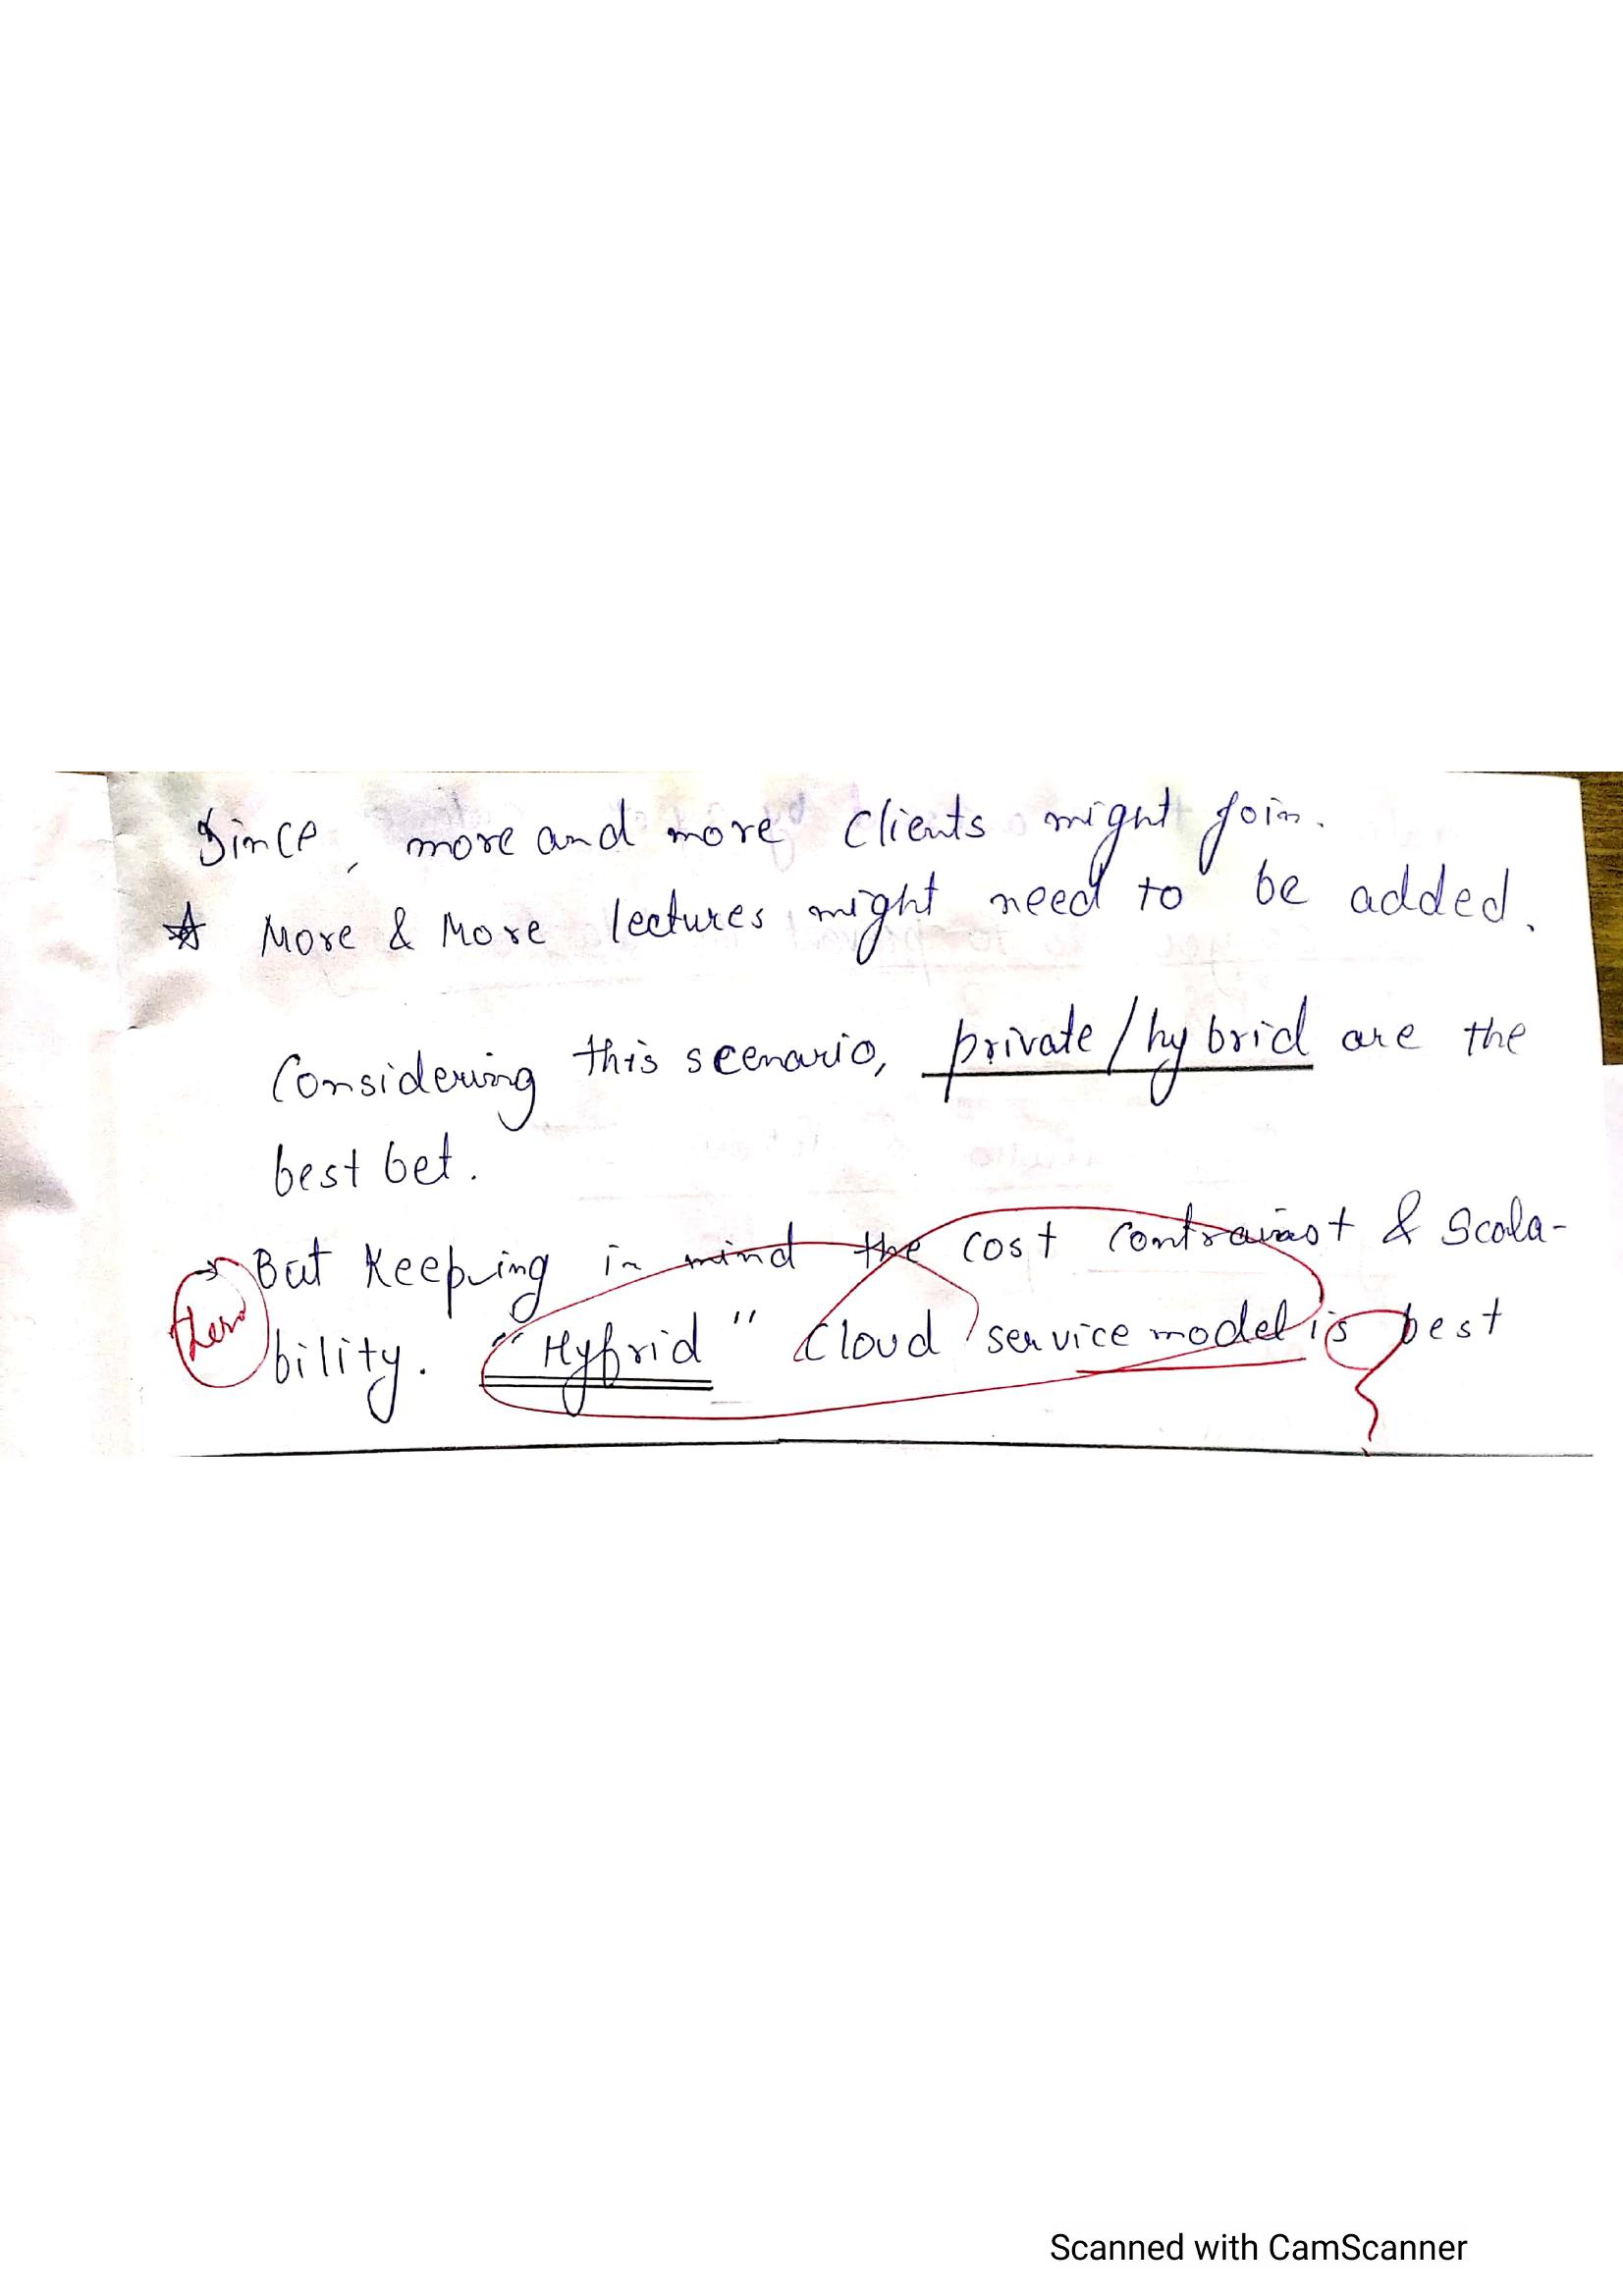 Since, more and more clients might join.
☆ More & More lectures might need to be added.
Considering this scenario, private/hybrid are the
best bet.
→ But keeping in mind the cost contrainst & Scala-
bility. "Hybrid" Cloud service model is best
Scanned with CamScanner